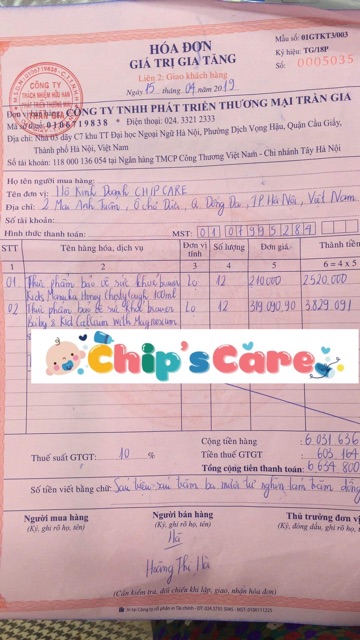 HÓA ĐƠN
GIÁ TRỊ GIA TĂNG
Liên 2: Giao khách hàng
Ngày 15 tháng 04 năm 2019
Mẫu số: 01GTKT3/003
Ký hiệu: TG/18P
Số: 0005035
CÔNG TY
TRÁCH NHIỆM HỮU HẠN
PHÁT TRIỂN THƯƠNG MẠI
TRẦN GIA
Đơn vị bán hàng: CÔNG TY TNHH PHÁT TRIỂN THƯƠNG MẠI TRẦN GIA
Mã số thuế: 0106719838 * Điện thoại: 024. 3321 2333
Địa chỉ: Nhà 03 dãy C7 khu TT Đại học Ngoại Ngữ Hà Nội, Phường Dịch Vọng Hậu, Quận Cầu Giấy,
Thành phố Hà Nội, Việt Nam
Số tài khoản: 118 000 136 054 tại Ngân hàng TMCP Công Thương Việt Nam - Chi nhánh Tây Hà Nội
Họ tên người mua hàng:
Tên đơn vị: Hộ Kinh Doanh CHIP CARE
Địa chỉ: 2 Mai Anh Tuấn, Ô chợ Dừa, Q Đống Đa, TP Hà Nội, Việt Nam
Số tài khoản:
Hình thức thanh toán: MST:
STT Tên hàng hóa, dịch vụ Đơn vị tính Số lượng Đơn giá Thành tiền
1 2 3 4 5 6 = 4 x 5
01 Thực phẩm bảo vệ sức khoẻ brauer Lọ 12 210.000 2.520.000
Kids Manuka Honey Chesty Cough 100ml
02 Thực phẩm bảo vệ sức khoẻ brauer Lọ 12 319.090,90 3.829.091
Baby & Kid Calcium with Magnesium
Chip's Care
Cộng tiền hàng: 6.031.636
Thuế suất GTGT: 10 % Tiền thuế GTGT: 603.164
Tổng cộng tiền thanh toán: 6.634.800
Số tiền viết bằng chữ: Sáu triệu sáu trăm ba mươi tư nghìn tám trăm đồng
Người mua hàng Người bán hàng Thủ trưởng đơn vị
(Ký, ghi rõ họ, tên) (Ký, ghi rõ họ, tên) (Ký, đóng dấu, ghi rõ họ,
Hà
Hoàng Thị Hà
(Cần kiểm tra, đối chiếu khi lập, giao, nhận hóa đơn)